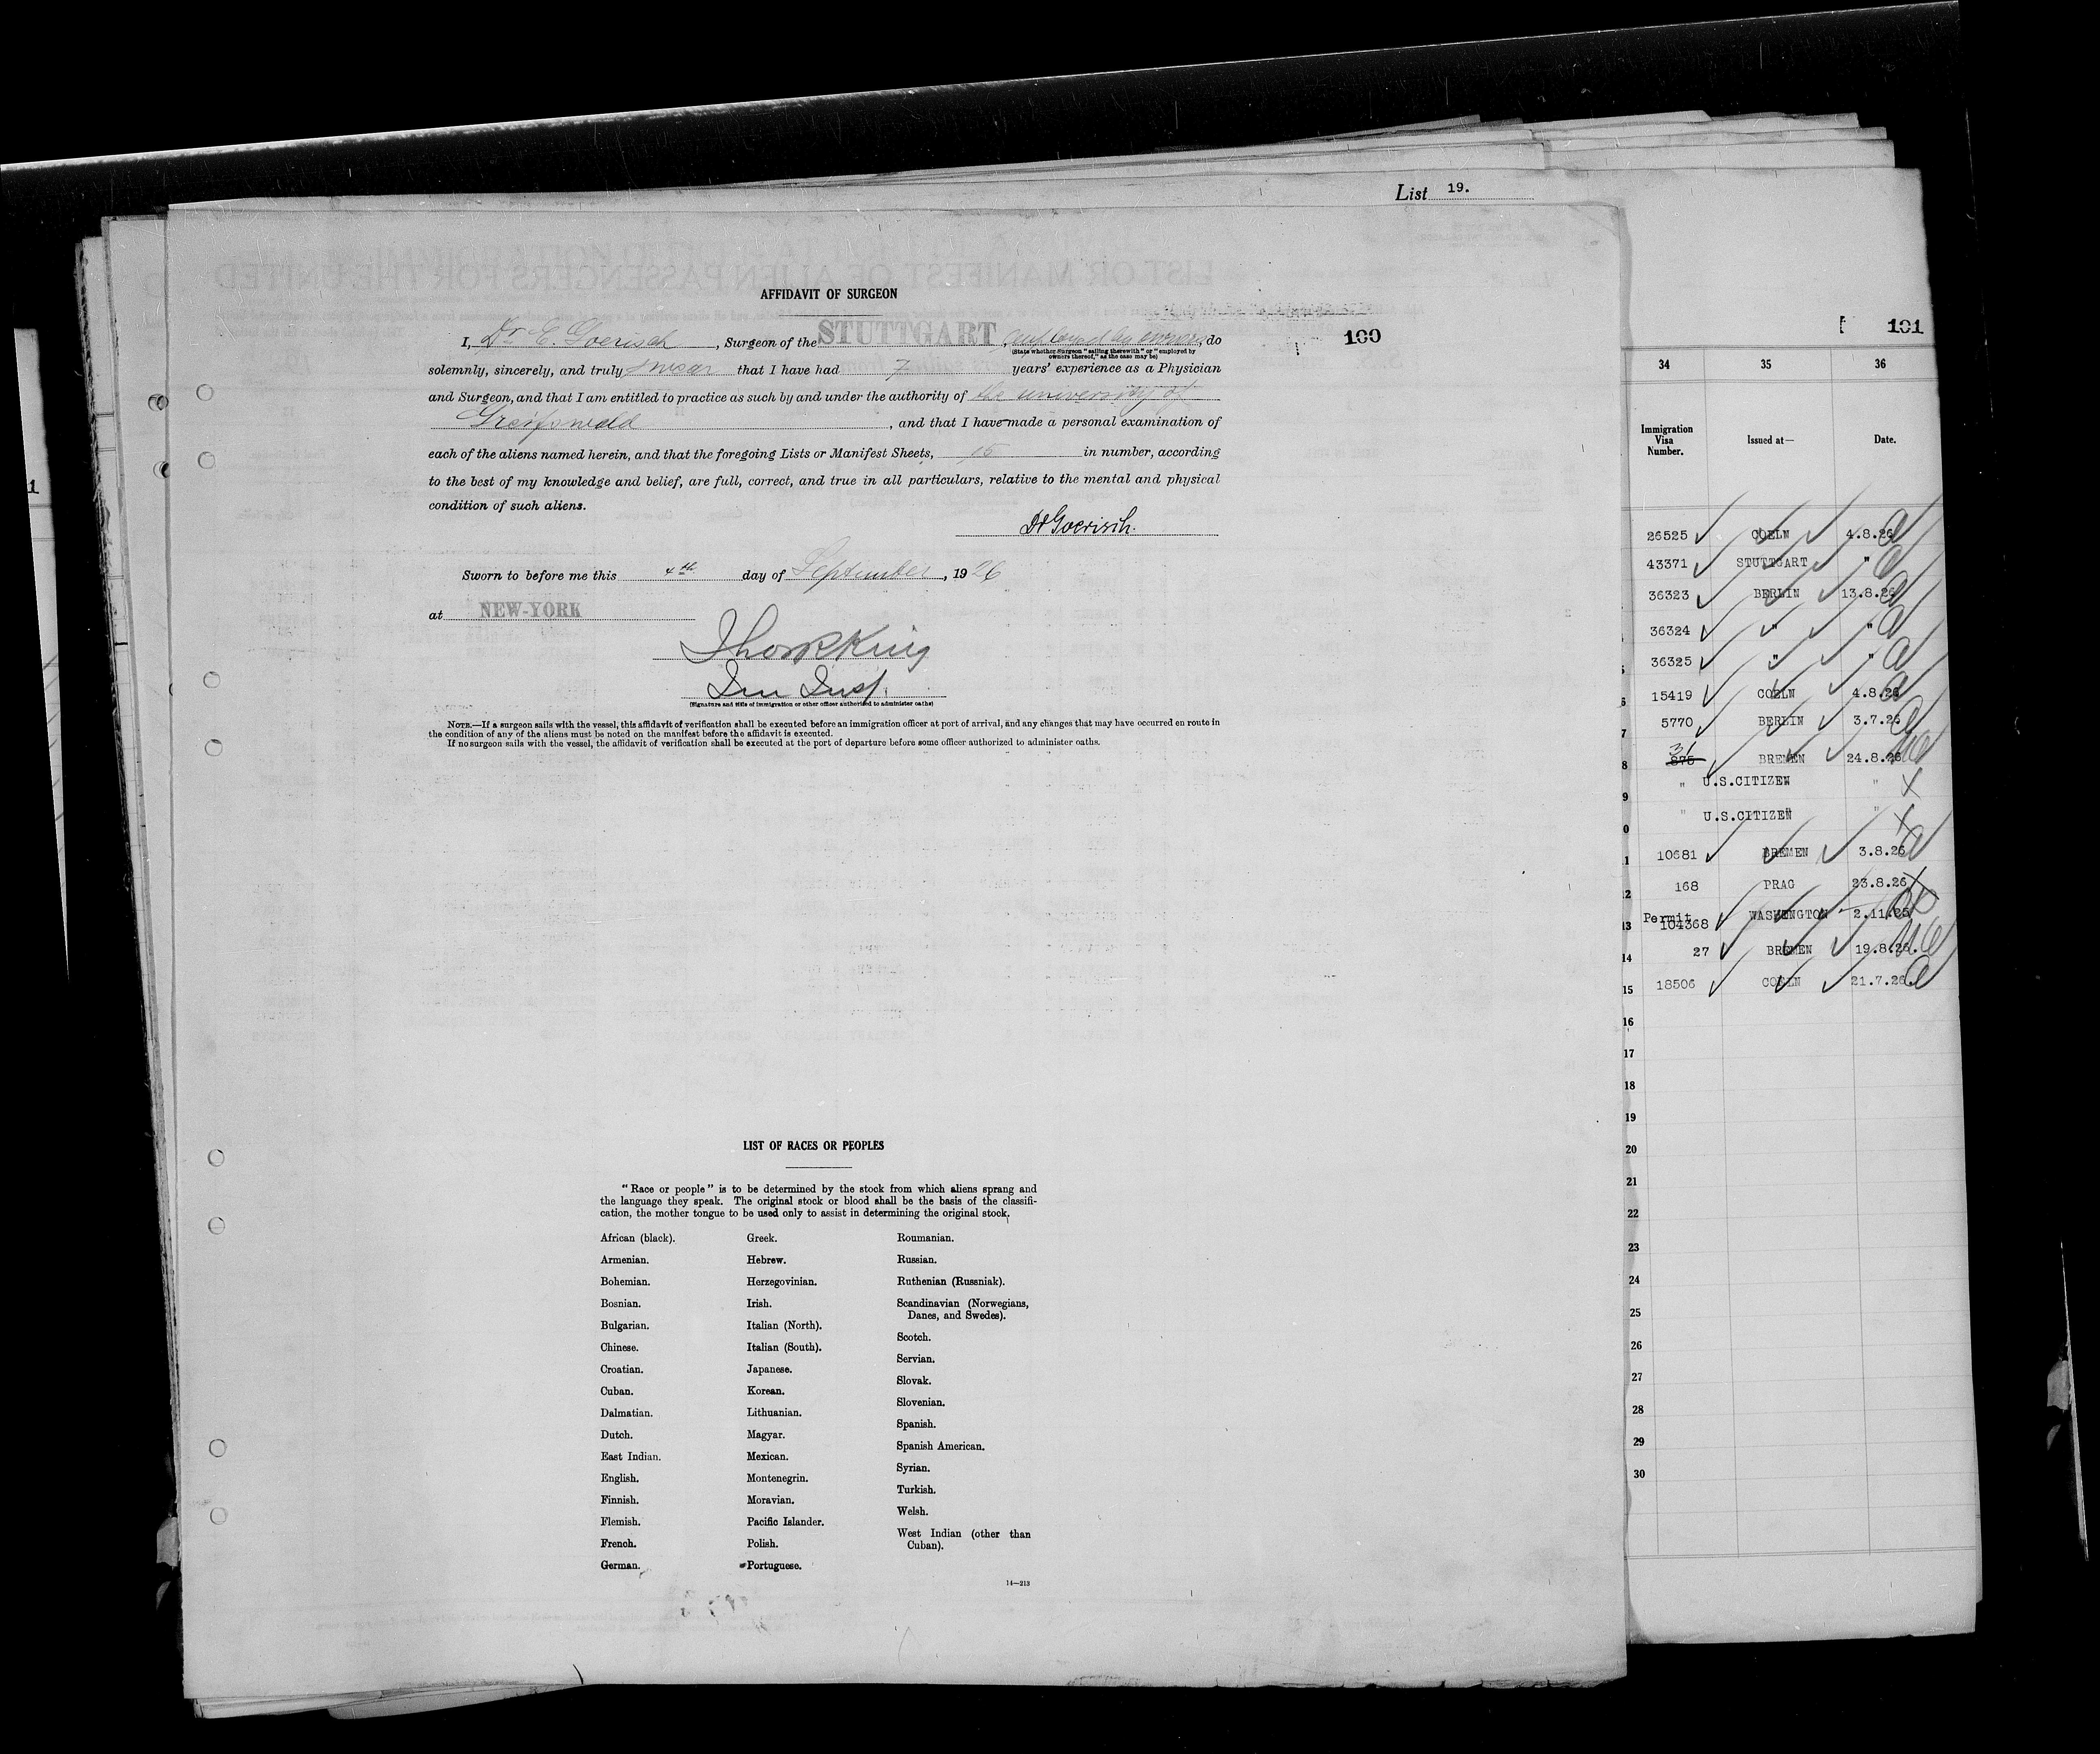 List 19.
AFFIDAVIT OF SURGEON
I, Dr E. Goerisch, Surgeon of the STUTTGART, employed by owners do
(State whether Surgeon "sailing therewith" or "employed by
owners thereof," as the case may be)
100
solemnly, sincerely, and truly swear that I have had 7 years' experience as a Physician
and Surgeon, and that I am entitled to practice as such by and under the authority of the university of
Greifswald, and that I have made a personal examination of
each of the aliens named herein, and that the foregoing Lists or Manifest Sheets, 15 in number, according
to the best of my knowledge and belief, are full, correct, and true in all particulars, relative to the mental and physical
condition of such aliens.
Dr Goerisch.
Sworn to before me this 4th day of September, 1926
at NEW-YORK
Imm Insp.
(Signature and title of immigration or other officer authorized to administer oaths)
NOTE.—If a surgeon sails with the vessel, this affidavit of verification shall be executed before an immigration officer at port of arrival, and any changes that may have occurred en route in
the condition of any of the aliens must be noted on the manifest before the affidavit is executed.
If no surgeon sails with the vessel, the affidavit of verification shall be executed at the port of departure before some officer authorized to administer oaths.
LIST OF RACES OR PEOPLES
"Race or people" is to be determined by the stock from which aliens sprang and
the language they speak. The original stock or blood shall be the basis of the classifi-
cation, the mother tongue to be used only to assist in determining the original stock.
African (black).
Armenian.
Bohemian.
Bosnian.
Bulgarian.
Chinese.
Croatian.
Cuban.
Dalmatian.
Dutch.
East Indian.
English.
Finnish.
Flemish.
French.
German.
Greek.
Hebrew.
Herzegovinian.
Irish.
Italian (North).
Italian (South).
Japanese.
Korean.
Lithuanian.
Magyar.
Mexican.
Montenegrin.
Moravian.
Pacific Islander.
Polish.
Portuguese.
Roumanian.
Russian.
Ruthenian (Russniak).
Scandinavian (Norwegians,
Danes, and Swedes).
Scotch.
Servian.
Slovak.
Slovenian.
Spanish.
Spanish American.
Syrian.
Turkish.
Welsh.
West Indian (other than
Cuban).
14—213
101
34 35 36
Immigration
Visa
Number.
Issued at—
Date.
26525 COELN 4.8.26
43371 STUTTGART "
36323 BERLIN 13.8.26
36324 " "
5 36325 " "
6 15419 COELN 4.8.26
7 5770 BERLIN 3.7.26
31
8 875 BREMEN 24.8.26
9 " U.S.CITIZEN "
0 " U.S.CITIZEN "
1 10681 BREMEN 3.8.26
12 168 PRAG 23.8.26
13 Permit 104368 WASHINGTON 2.11.25
14 27 BREMEN 19.8.26.
15 18506 COELN 21.7.26
16
17
18
19
20
21
22
23
24
25
26
27
28
29
30